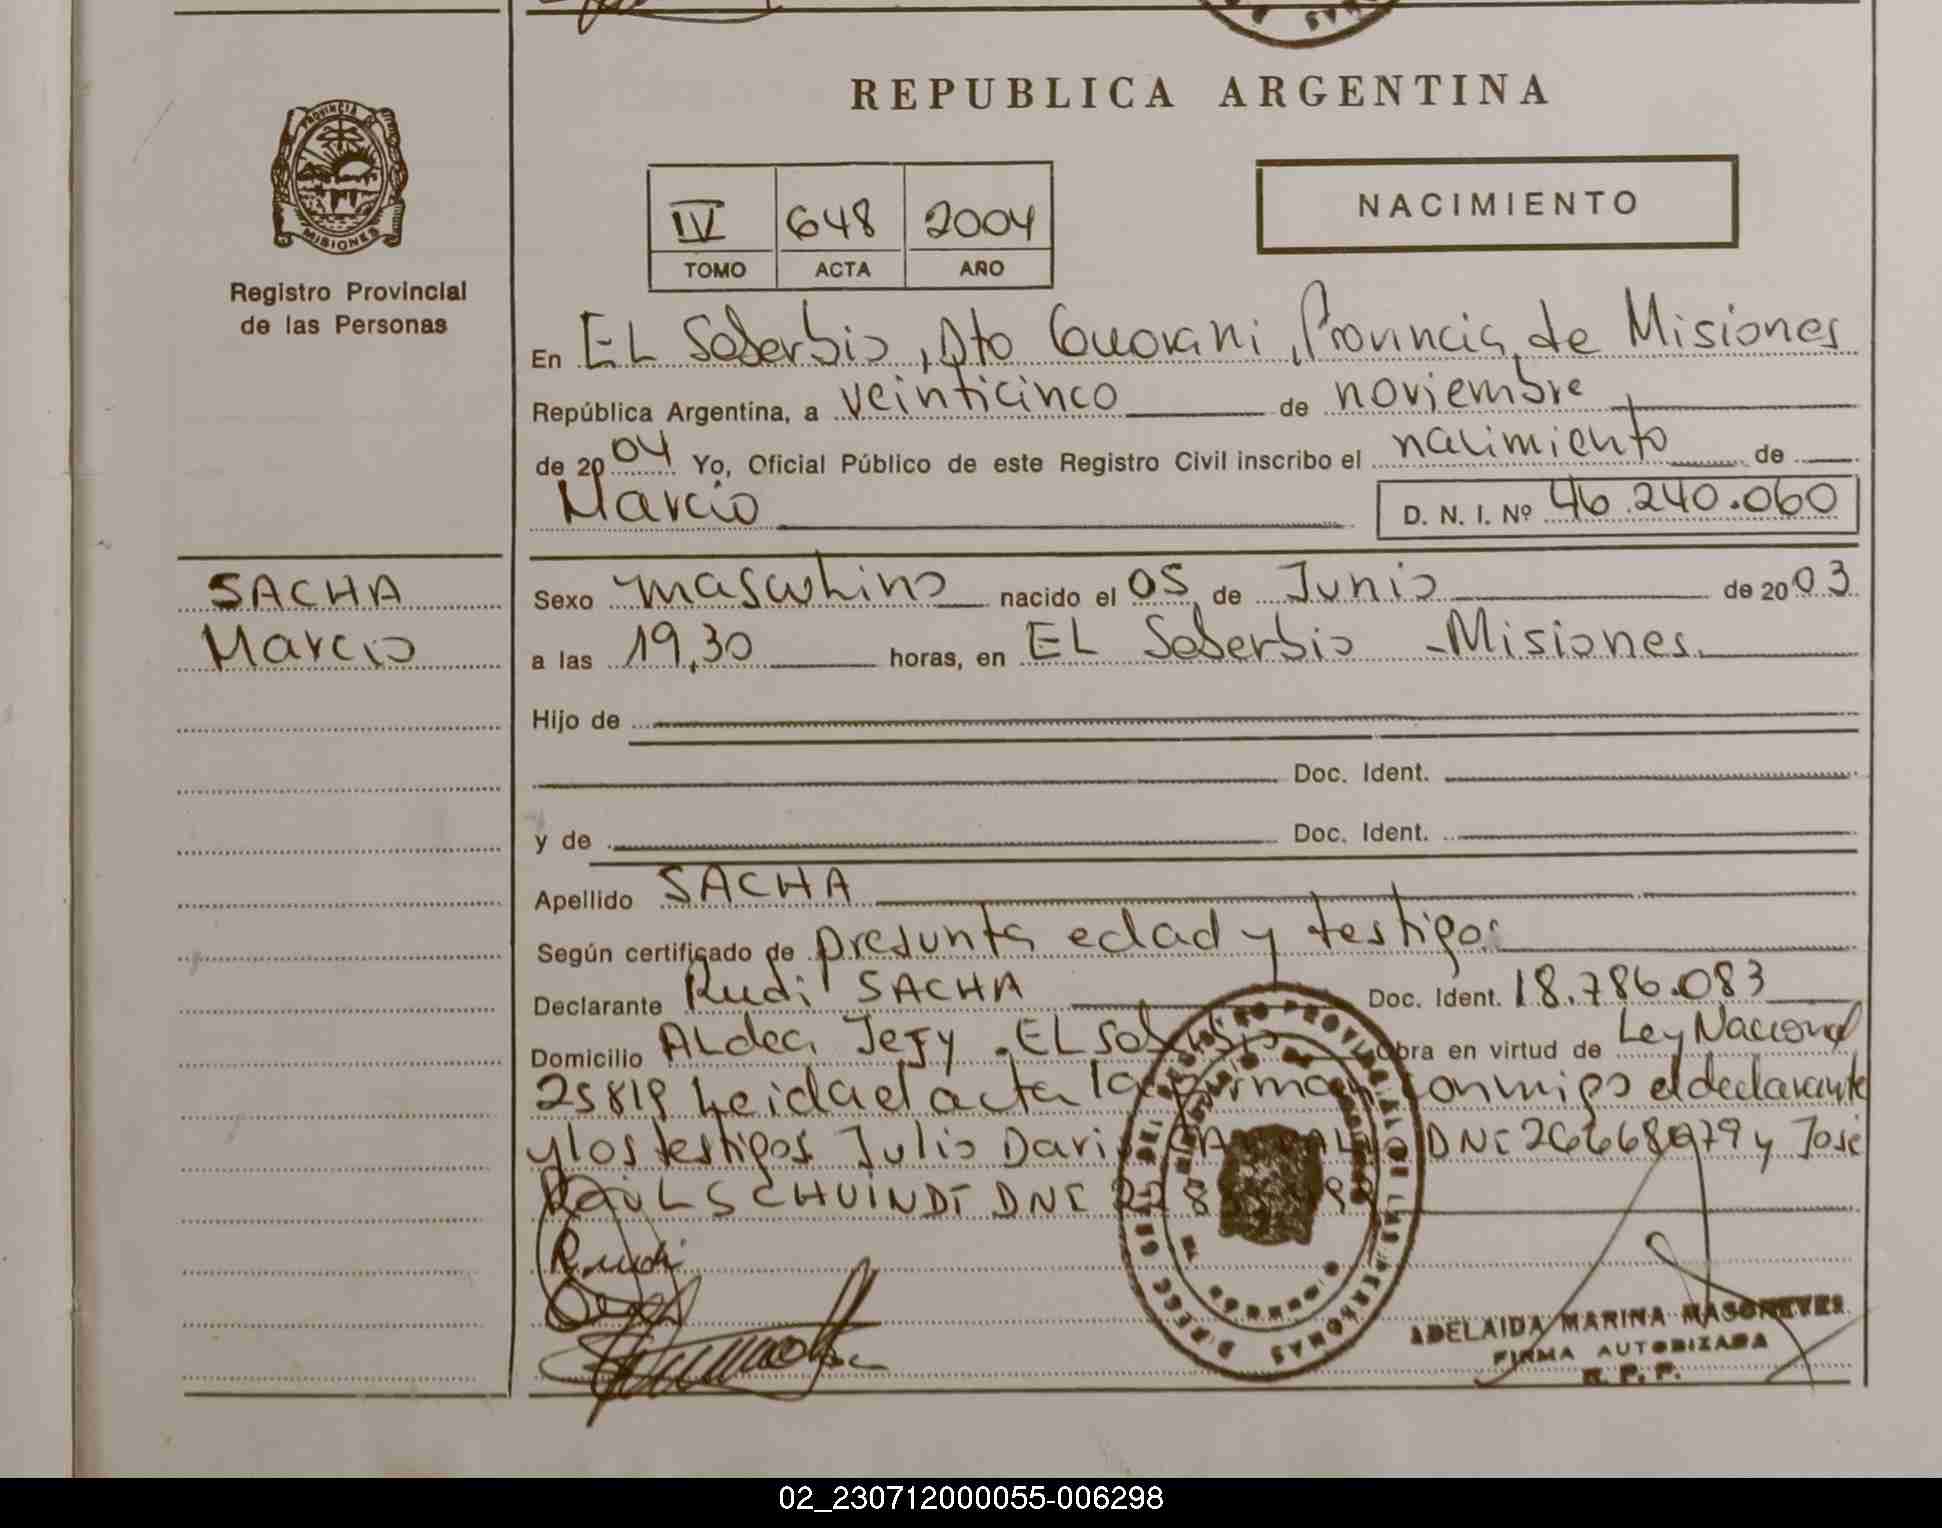 REPUBLICA ARGENTINA
PROVINCIA DE
MISIONES
Registro Provincial
de las Personas
IV 648 2004
TOMO ACTA AÑO
NACIMIENTO
En EL Soberbio, Dto Guarani, Provincia de Misiones
República Argentina, a veinticinco de noviembre
de 2004 Yo, Oficial Público de este Registro Civil inscribo el nacimiento de
Marcio D. N. I. Nº 46.240.060
SACHA
Marcio
Sexo masculino nacido el 05 de Junio de 2003
a las 19,30 horas, en EL Soberbio - Misiones
Hijo de
Doc. Ident.
y de Doc. Ident.
Apellido SACHA
Según certificado de presunta edad y testigos
Declarante Rudi SACHA Doc. Ident. 18.786.083
Domicilio ALdea Jejy - EL Soberbio Obra en virtud de Ley Nacional
25819 Leida el acta la firman conmigo el declarante
y los testigos Julio Dario DNI 26668979 y José
RaúL SCHUINDT DNI 22 8
Rudi
ADELAIDA MARINA
FIRMA AUTORIZADA
R. P. P.
02_230712000055-006298